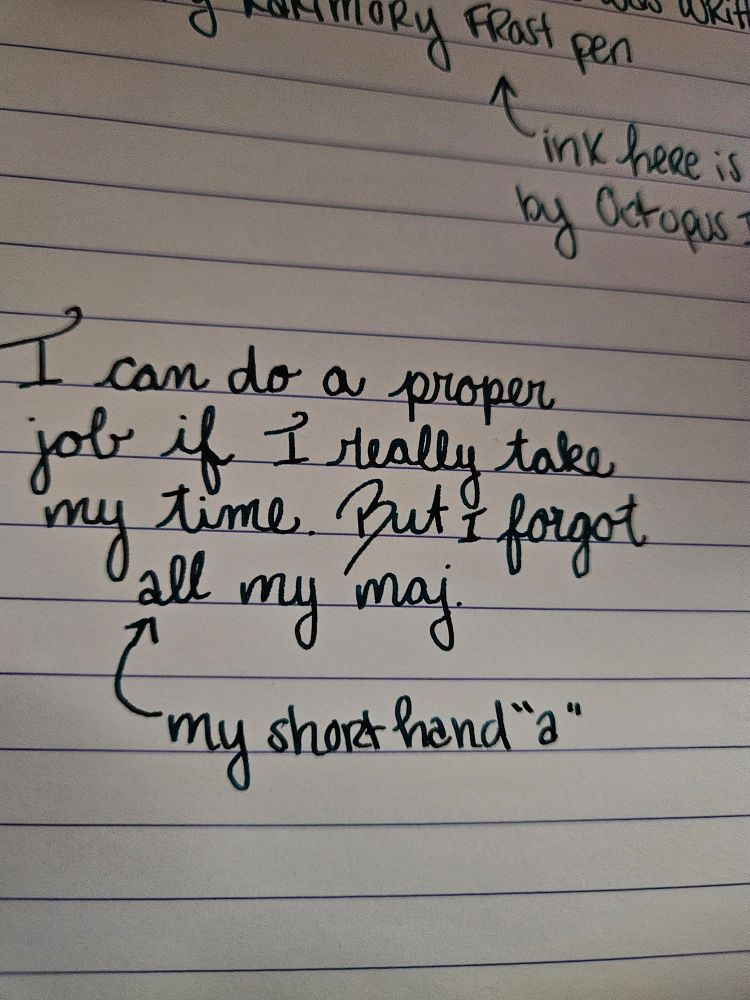 FRost pen
ink here is
by Octopus
I can do a proper
job if I really take
my time. But I forgot
all my maj.
my shorthand "a"